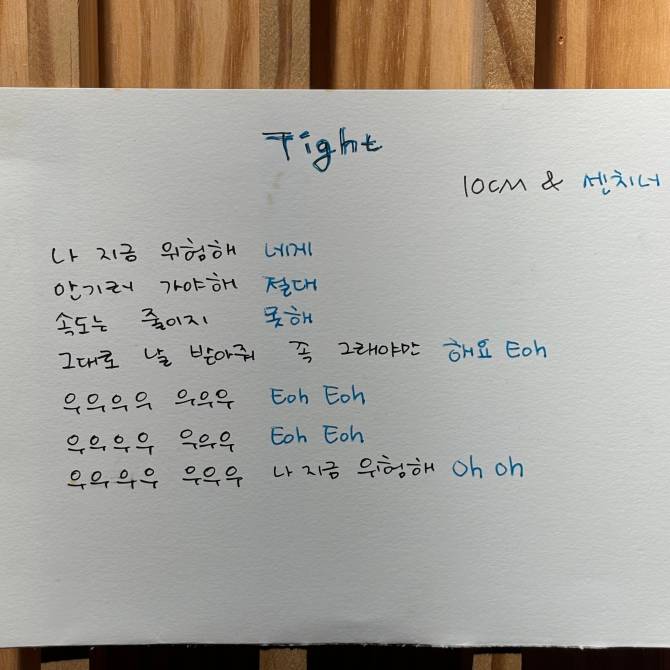 Tight
10CM & 센치너
나 지금 위험해 네게
안기러 가야해 절대
속도는 줄이지 못해
그대로 날 받아줘 꼭 그래야만 해요 Eoh
우우우우 우우우 Eoh Eoh
우우우우 우우우 Eoh Eoh
우우우우 우우우 나 지금 위험해 Oh Oh